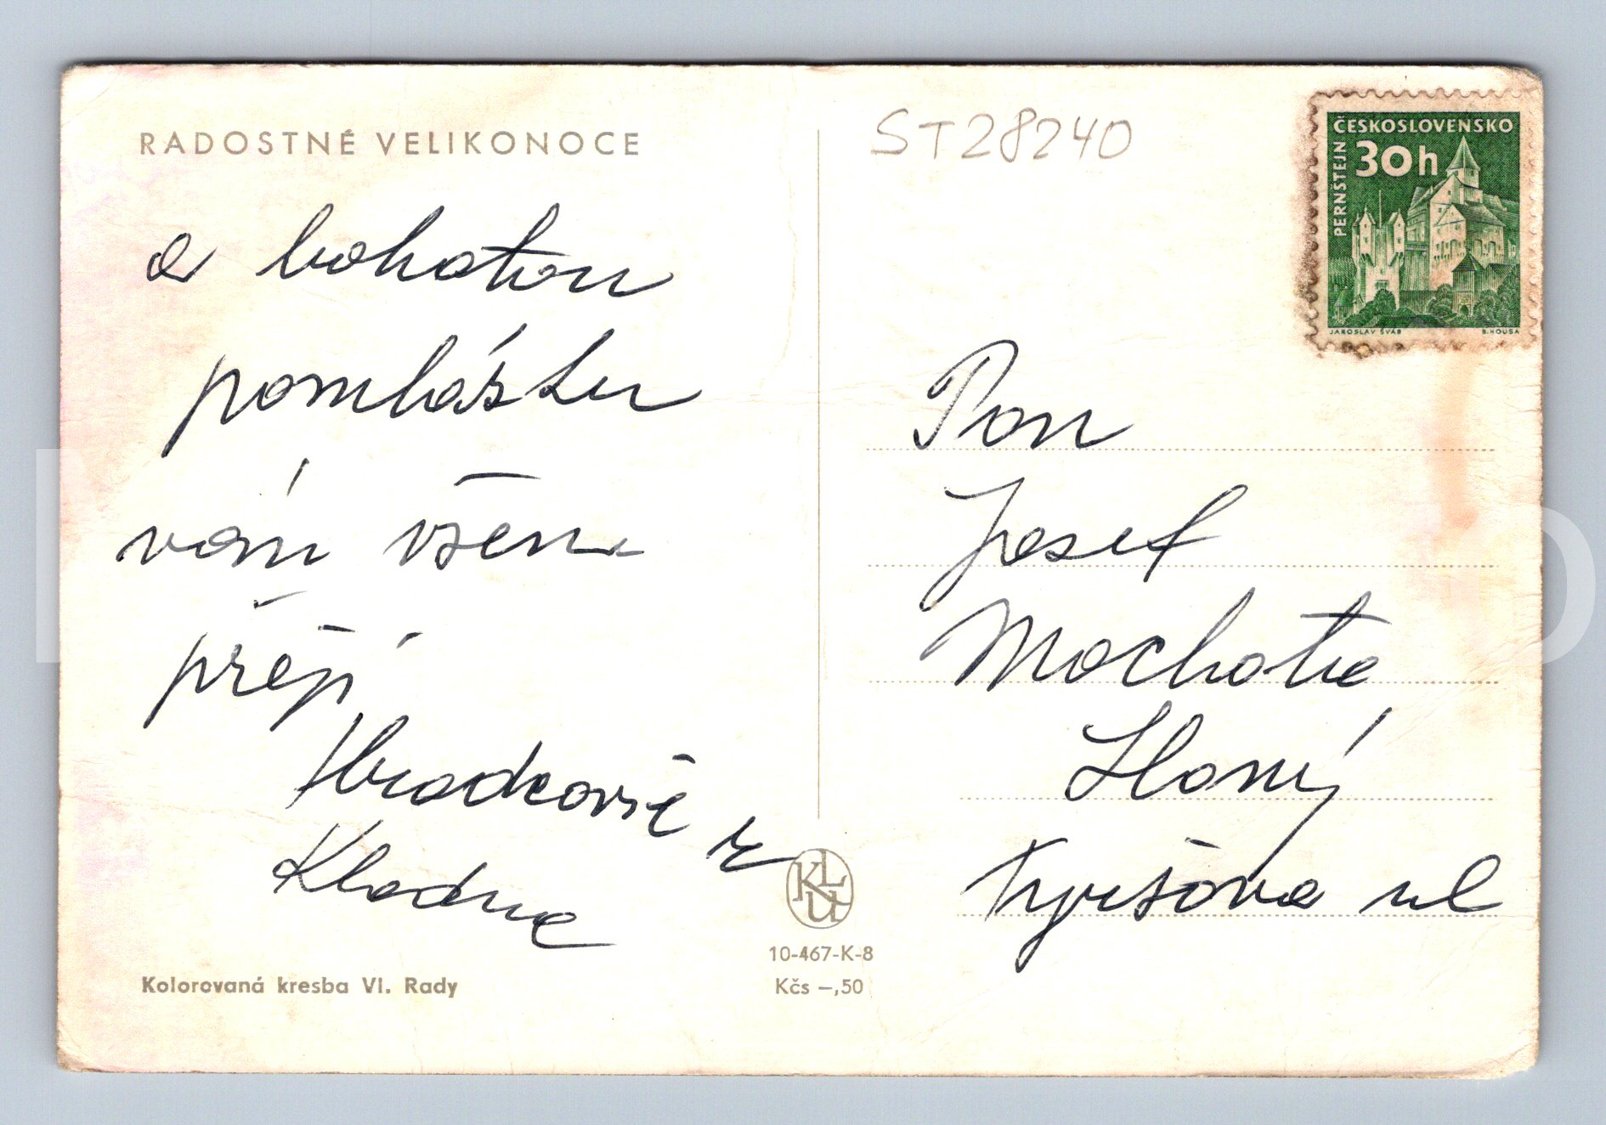 RADOSTNÉ VELIKONOCE
a bohatou
pomlázku
vám všem
přejí
Hradcovi z
Kladna
Kolorovaná kresba Vl. Rady
KLU
10-467-K-8
Kčs –,50
ST28240
ČESKOSLOVENSKO
30h
PERNŠTEJN
JAROSLAV ŠVÁB
B. HOUSA
Pan
Josef
Slaný
Tyršova ul